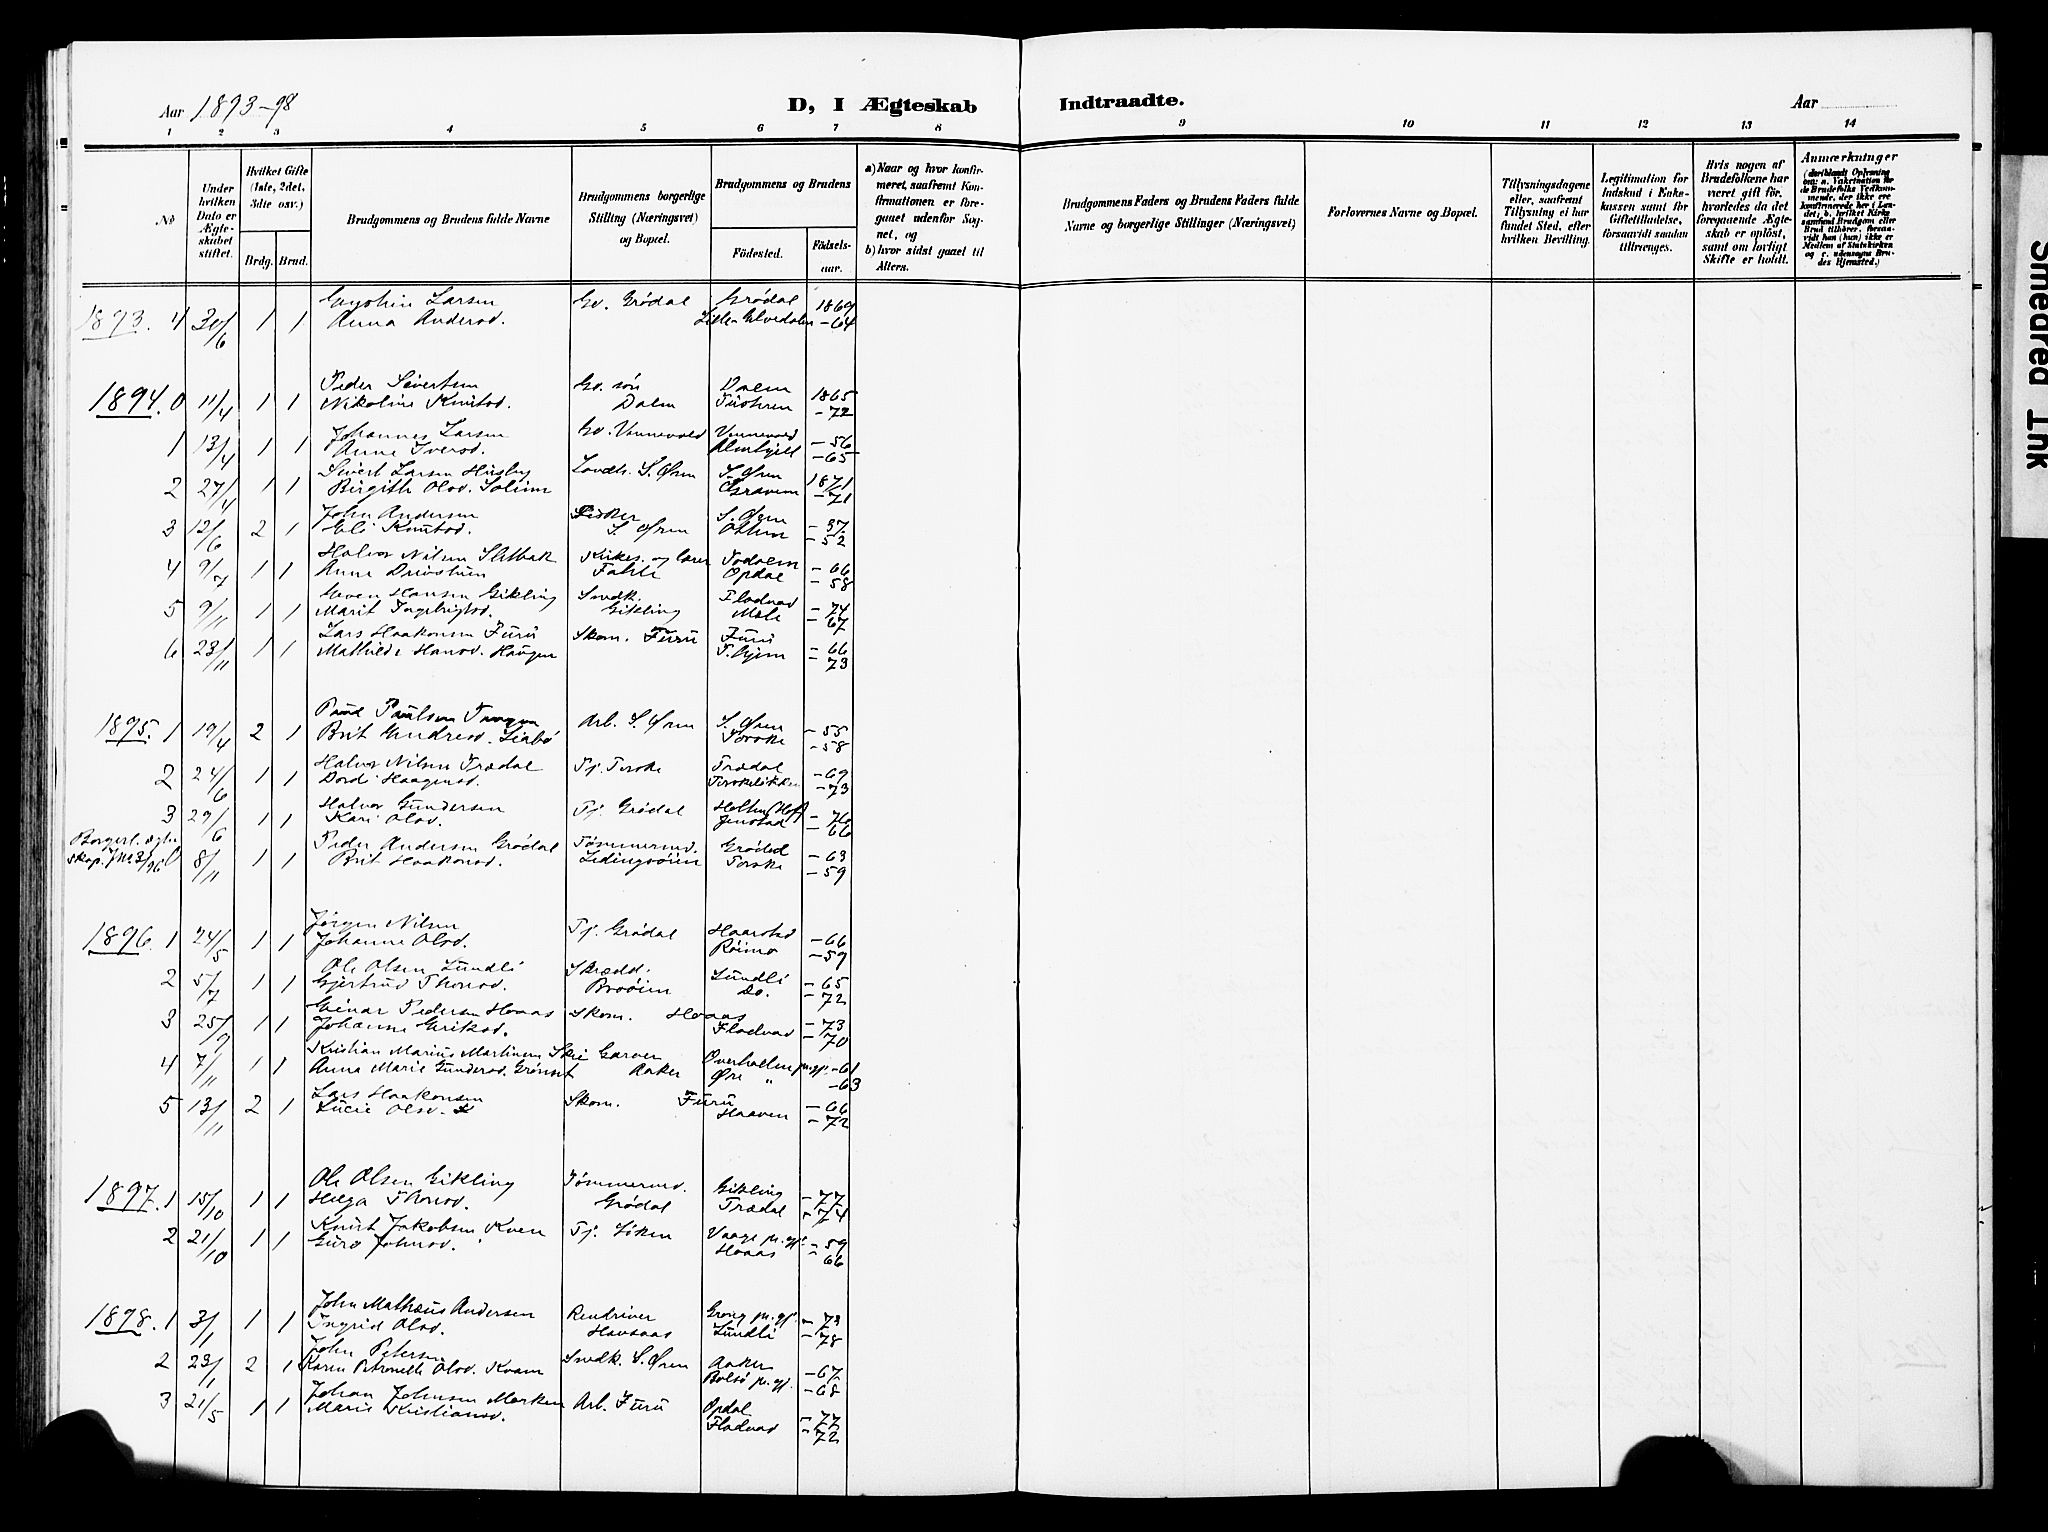 Aar 1893-98
D, I Ægteskab Indtraadte.
Aar
1 2 3 4 5 6 7 8 9 10 11 12 13 14
No
Under hvilken Dato er Ægteskabet stiftet.
Hvilket Gifte (1ste, 2det, 3dte osv.)
Brdg. Brud.
Brudgommens og Brudens fulde Navne
Brudgommens borgerlige Stilling (Næringsvei) og Bopæl.
Brudgommens og Brudens
Födested. Födselsaar.
a) Naar og hvor konfirmeret, saafremt Konfirmationen er foregaaet udenfor Sognet, og
b) hvor sidst gaaet til Alters.
Brudgommens Faders og Brudens Faders fulde Navne og borgerlige Stillinger (Næringsvei)
Forlovernes Navne og Bopæl.
Tillysningsdagene eller, saafremt Tillysning ei har fundet Sted, efter hvilken Bevilling.
Legitimation for Indskud i Enkekassen samt for Giftetilladelse, forsaavidt saadan tiltrænges.
Hvis nogen af Brudefolkene har været gift för, hvorledes da det foregaaende Ægteskab er oplöst, samt om lovligt Skifte er holdt.
Anmærkninger
(deriblandt Oplysning om: a. Vakcination for de Brudefolks Vedkommende, der ikke ere konfirmerede her i Landet; b. hvilket Kirkesamfund Brudgom eller Brud tilhörer, forsaavidt han (hun) ikke er Medlem af Statskirken og c. udensogns Brudes Hjemsted.)
1893. 4 30/6 1 1 Larsen Gv. Grødal Grødal 1869
Anna Andersd. Lille-Elvedalen -64
1894. 0 11/4 1 1 Peder Sivertsen Gv. søn Dalem 1865
Nikoline Knutsd. Dalem -72
1 13/4 1 1 Johannes Larsen Gv. Vennevold Vennevold -56
Anne Iversd. -65
2 27/4 1 1 Sivert Larsen Husby Landh. S. Øren S. Øren 1871
Birgith Olsd. Solum Gravem -71
3 12/6 2 1 John Andersen Fisker S. Øren -37
Eli Knutsd. S. Øren Ottem -52
4 9/7 1 1 Halvor Nilsen Sletbak Kirkes. og lærer Todalem -66
Anne Drivstuen Fahle Opdal -58
5 9/11 1 1 Even Hansen Gikling Snedk. Fladvad -74
Marit Ingebrigtsd. Gikling Mæle -67
6 23/11 1 1 Lars Haakonsen Furu Skom. Furu Furu -66
Mathilde Hansd. Haugen T. hjem -73
1895. 1 19/4 2 1 Paul Paulsen Arb. S. Øren S. Øren -55
Brit Endresd. Liabø Torske -58
2 24/6 1 1 Halvor Nilsen Trædal Tj. Torske Trædal -69
Dordi Haagensd. Torskeløkken -73
3 29/6 1 1 Halvor Gundersen Tj. Grødal Holten (Hof) -70
Kari Olsd. Jenstad -66
Borgerl. ægteskap. J No 3/96 0 8/11 1 1 Peder Andersen Grødal Tømmermd. Grødal -63
Brit Haakonsd. Ledingsøien Torske -59
1896. 1 24/5 1 1 Jørgen Nilsen Tj. Grødal Haarstad -66
Johanne Olsd. Røimo -59
2 5/7 1 1 Ole Olsen Lundli Skrædd. Lundli -65
Gjertrud Thorsd. Broøien Do. -72
3 25/9 1 1 Einar Pedersen Hoaas Skom. Hoaas -73
Johanne Eriksd. Fladvad -70
4 7/11 1 1 Kristian Marius Martinsen Skei Garver Overhallen pr.gj. -61
Anna Marie Gundersd. Grønset Aaker Øre " -63
5 13/11 2 1 Lars Haakonsen Skom. Furu -66
Lucie Olsd. Haaven -72
1897. 1 15/10 1 1 Ole Olsen Gikling Tømmermd. Gikling -77
Helga Thorsd. Grødal Trædal -74
2 21/10 1 1 Knut Jakobsen Kven Tj. Løken Vaage pr.gj. -59
Guro Johnsd. Hoaas -66
1898. 1 3/1 1 1 John Mathæus Andersen Rendriver Grong pr.gj. -73
Ingrid Olsd. Havsaas Lundli -78
2 23/1 2 1 John Petersen Snedk. S. Øren Aaker -67
Karen Petronelle Olsd. Kvam Bolsø pr.gj. -68
3 21/5 1 1 Johan Johnsen Marken Arb. Furu Opdal -77
Marie Kristiansd. Fladvad -72
Smeared Ink